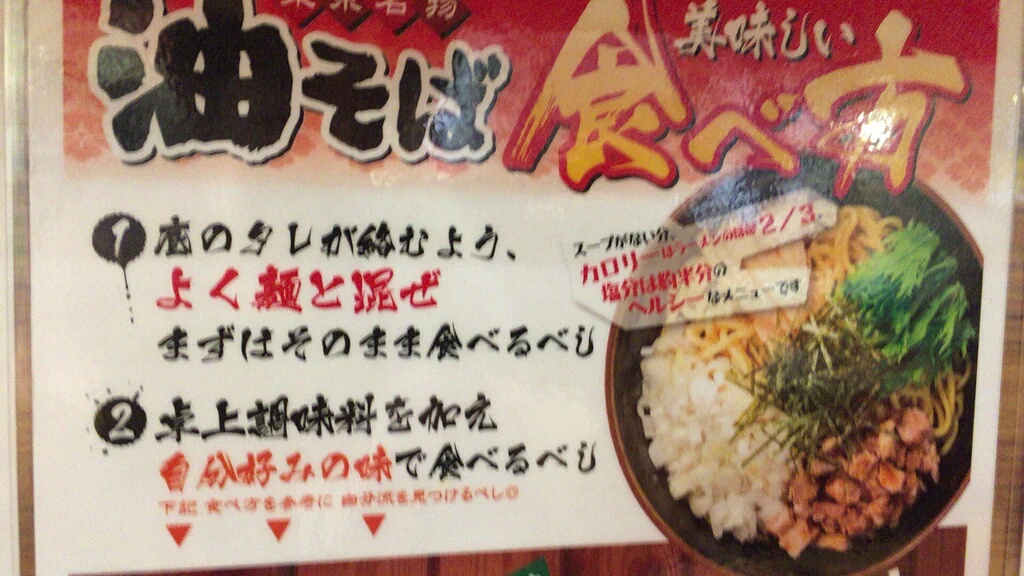 東京名物
油そば
美味しい
食べ方
スープがない分、
カロリーはラーメンのほぼ2/3、
塩分は約半分の
ヘルシーなメニューです
1 底のタレが絡むよう、
よく麺と混ぜ
まずはそのまま食べるべし
2 卓上調味料を加え
自分好みの味で食べるべし
下記 食べ方を参考に 自分流を見つけるべし◎